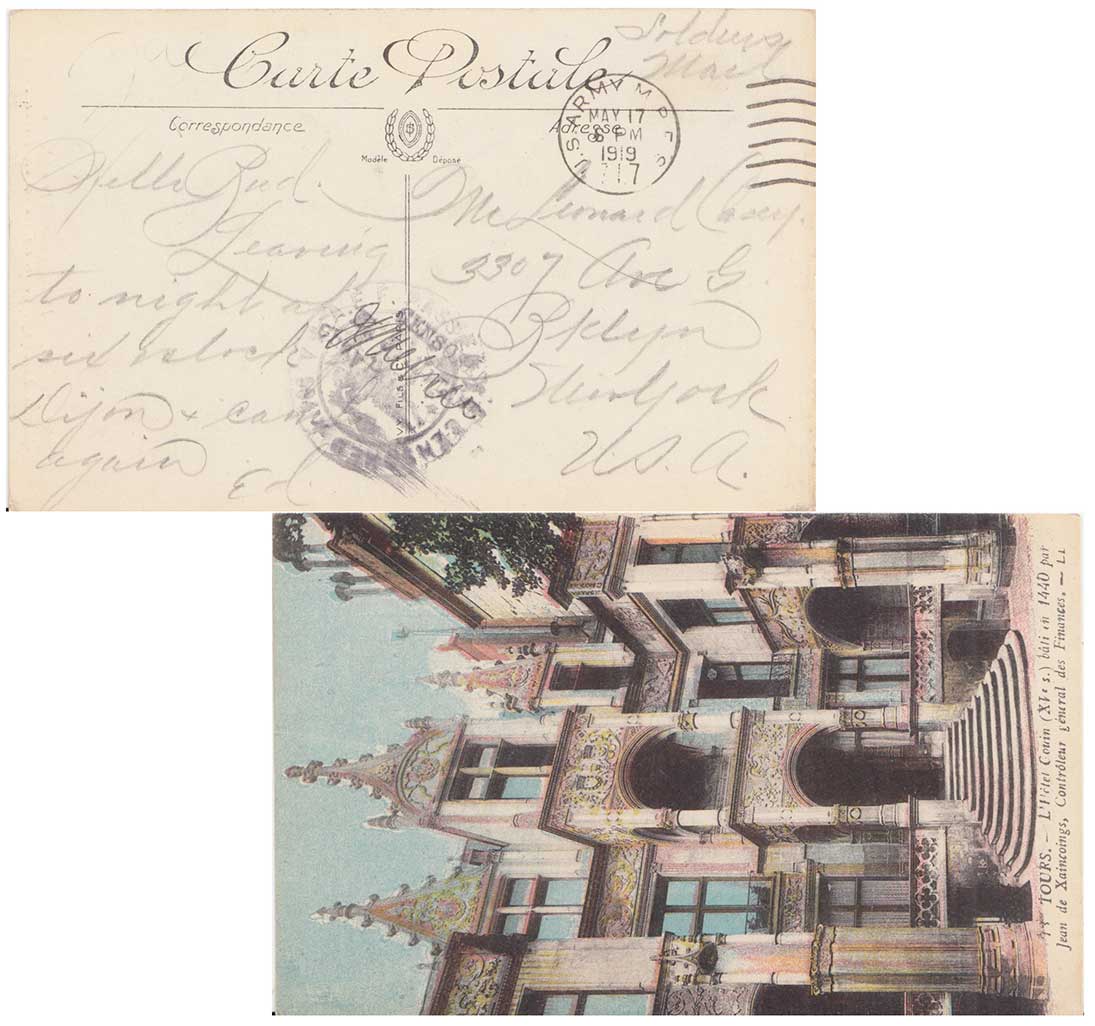 Soldiers
Mail
Carte Postale
Correspondance
Adresse
Modèle Déposé
U.S. ARMY M.P.E.S.
MAY 17
8 PM
1919
717
Hello Bud.
Leaving
to night at
six oclock
Dijon + can
again
Ed
Mr Leonard Casey.
3307 Ave G.
Bklyn
New York
U.S.A.
PARIS
TOURS. — L'Hôtel Gouin (XVe s.) bâti en 1440 par
Jean de Xaincoings, Contrôleur général des Finances. — LL